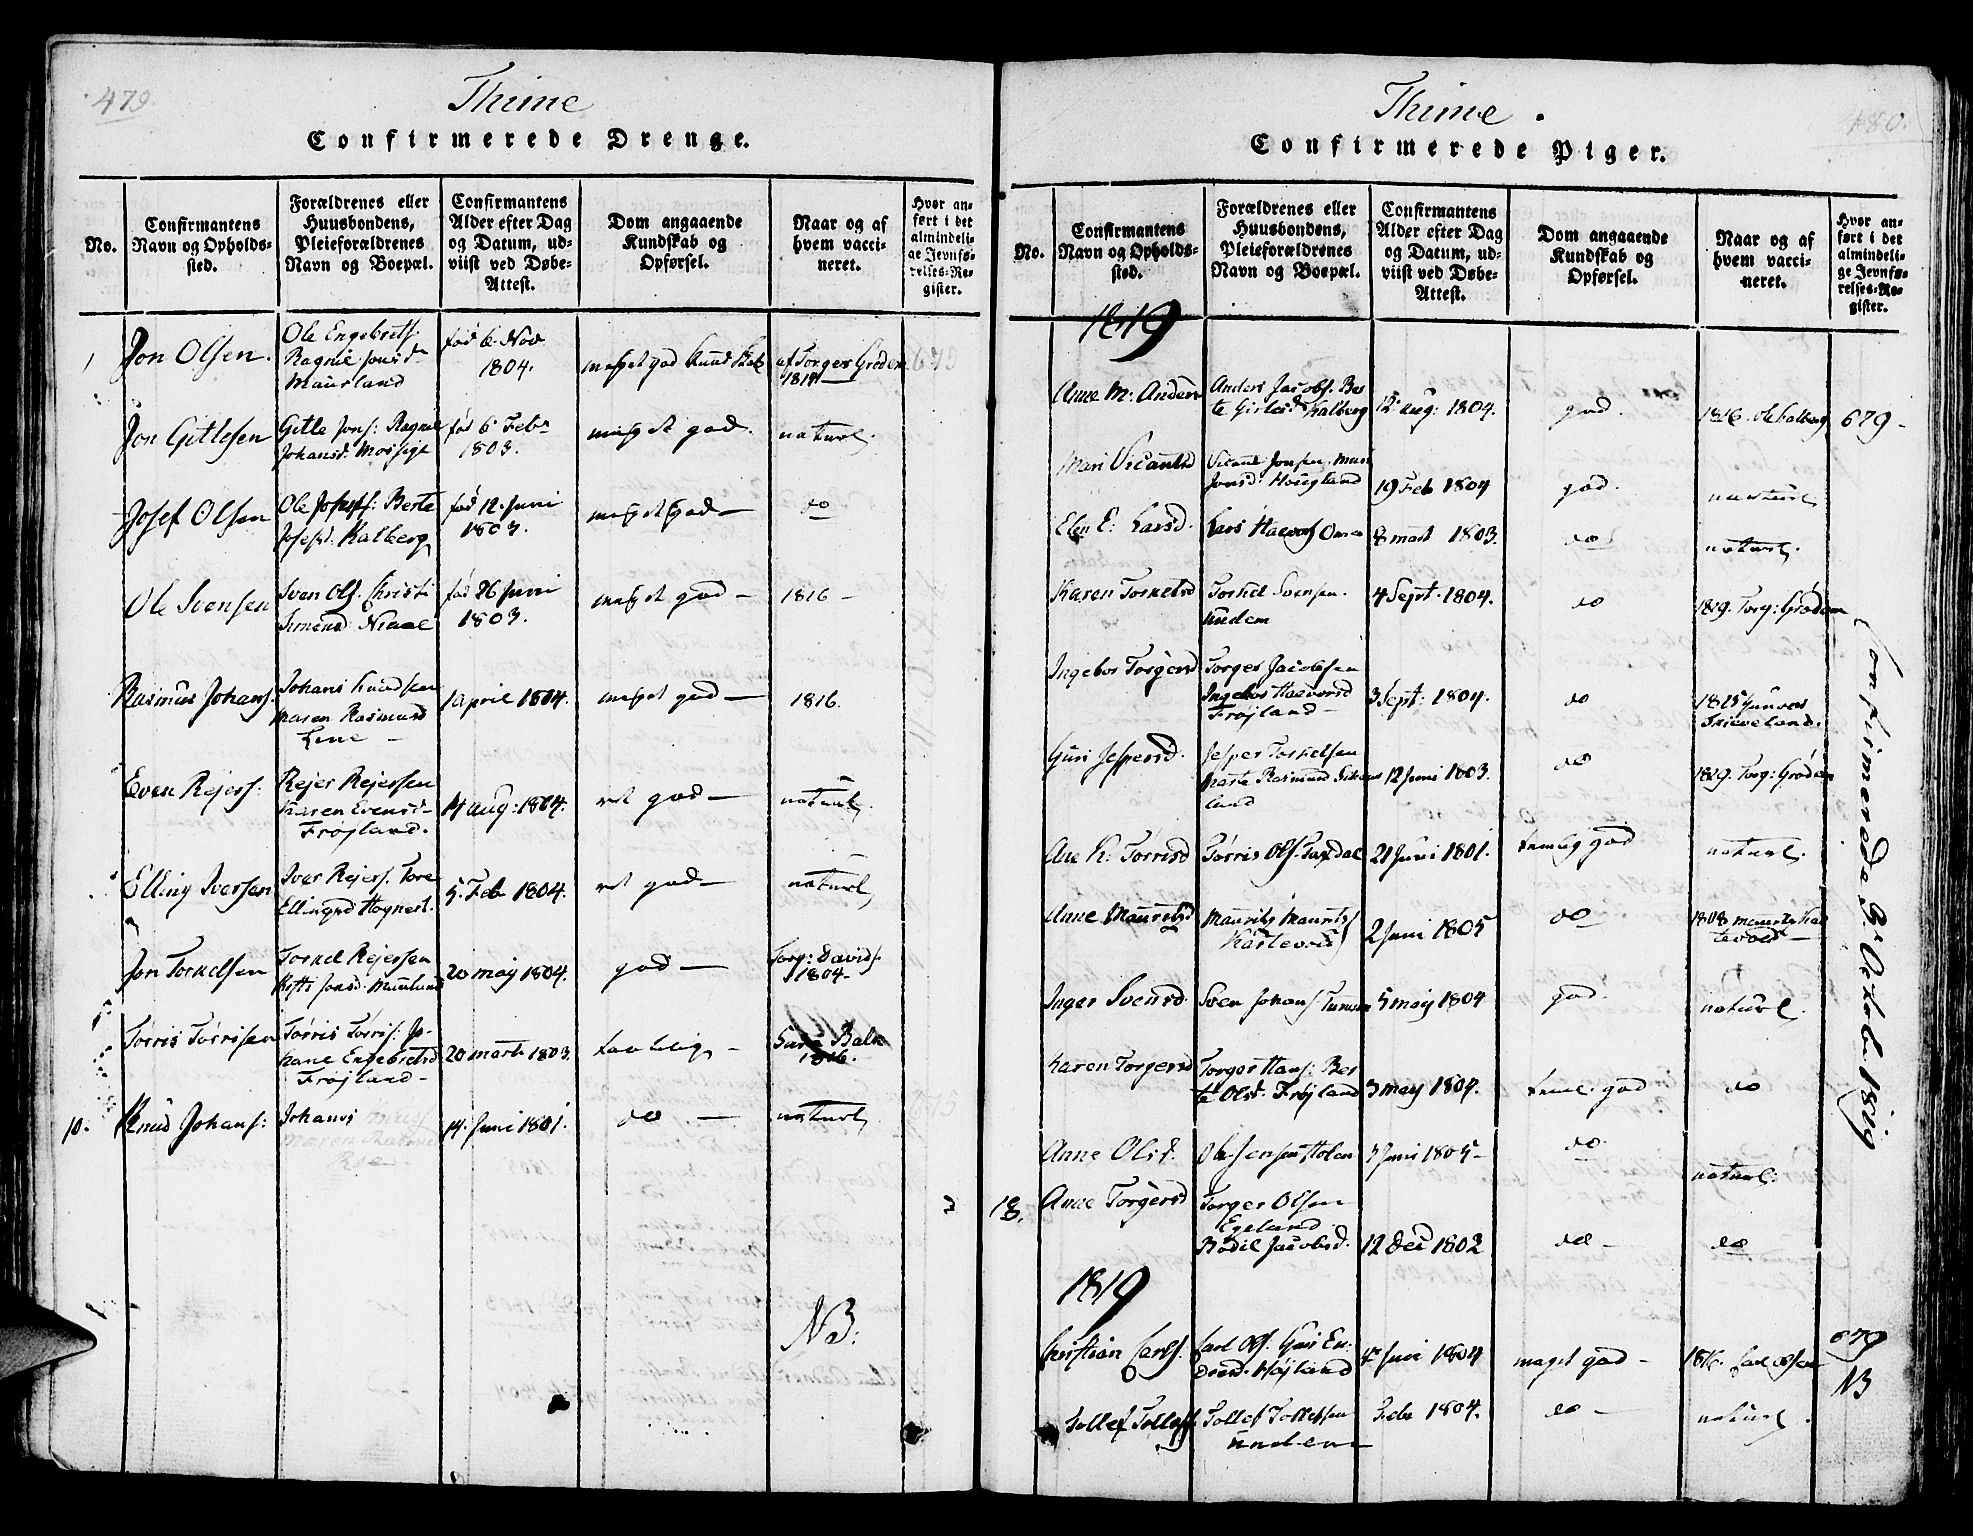 479.
Thime
Confirmerede Drenge.
No.
Confirmantens Navn og Opholds-sted.
Forældrenes eller Huusbondens, Pleieforældrenes Navn og Boepæl.
Confirmantens Alder efter Dag og Datum, ud-viist ved Døbe-Attest.
Dom angaaende Kundskab og Opførsel.
Naar og af hvem vacci-neret.
Hvor an-ført i det almindeli-ge Jevnfø-relses-Re-gister.
1
Jon Olsen.
Ole Engebrets:
Ragnie Jonsd
Maurland
fød 6 Nov
1804.
meget god Kundskab
af Torger Grødem
1819
Jon Gitlesen
Gitle Jons: Ragnie
Johansd. Mossige
fød 6 Febr
1803.
meget god.
naturl.
Josef Olsen
Ole Josefs: Berte
Josefsd. Kalberg
fød 12. Juni
1803.
meget god
do
Ole Svensen
Sven Ols. Christi
Simensd. Niaae
fød 26 Juni
1803.
meget god
1816
Rasmus Johans.
Johans Knudsen
Maren Rasmusd
Line
1 April 1804.
meget god
1816.
Even Rejers:
Rejer Rejersen
Karen Evensd
Frøjland.
14 Aug: 1804.
ret god
naturl.
Elling Iversen
Iver Rejers. Tore
Ellingsd Hognest.
5. Feb 1804.
ret god
naturl
Jon Torkelsen
Torkel Rejersen
20 maj 1804.
god
Torg: Davids.
1804
Torris Tørrisen
Tørris Torris: Jo-
hane Engebretsd
Frøjland
20 marti 1803.
taalelig
1816.
10.
Knud Johans:
Johans
14. Juni 1801.
do
naturl
NB:
480.
Thime.
Confirmerede Piger.
No.
Confirmantens Navn og Opholds-sted.
Forældrenes eller Huusbondens, Pleieforældrenes Navn og Boepæl.
Confirmantens Alder efter Dag og Datum, ud-viist ved Døbe-Attest.
Dom angaaende Kundskab og Opførsel.
Naar og af hvem vacci-neret.
Hvor an-ført i det almindeli-ge Jevnfø-relses-Re-gister.
1819
Anne M: Anders
Anders Jacobs. Ber
te Girtsd Kalberg
12 aug: 1804.
god.
1816. Ole Kalberg
679
Mari Vicantsd
Vicant Jonsen, Mari
Jonsd: Hougland
19 Feb 1804
god.
naturl
Elen E: Larsd.
Lars Haavors
8 mart 1803.
do
naturl.
Karen Torkelsd
Torkel Svensen.
Undem
4 Sept. 1804.
do
1819. Torg: Grødem
Ingebor Torgersd
Torger Jacobsen
Ingebor Haavorsd
Frøjland
3 Sept: 1804.
do
1815 Gunvor
Guri Jespersd.
Jesper Torkelsen
Marte Rasmusd
land
12 Juni 1803.
do
1819. Torg: Grødem
Ane K: Torrisd
Tørris Ols. Taxdal
21 Juni 1801.
temlig god
naturl.
Anne Mauritsd
Maurits Maurits
2 Juni 1805
do
1808
Inger Svensd.
Sven Johans. Tunem
5 maj 1804
god.
naturl.
Karen Torgersd
Torger Hans: Ber
te Olsd. Frøjland
3 maj 1804.
teml: god
do
Anne Olsd.
Ole Jensen Holen
3 Juni 1805
do
naturl.
13.
Anne Torgersd
Torger Olsen
Egeland
Bodil Jacobsd.
12 Dec 1802
do
do
1819
Christian Carls.
Carl Ols. Guri En:
dresd. Højland
4 Juni 1804
meget god
1816. Carl Olsen
679
NB
Tollef Tollefs.
Tollef Tollefsen
Undem
Feb 1804.
do
naturl.
Confirmerede 3 October 1819